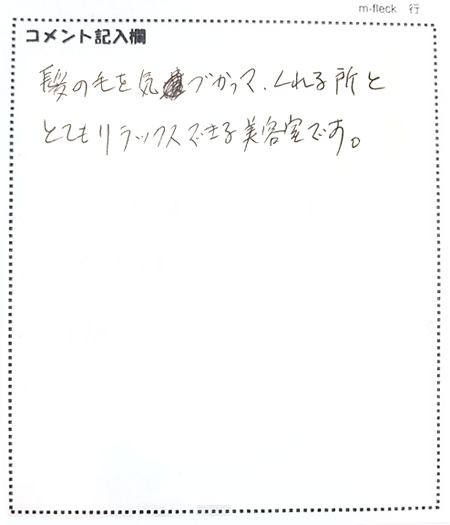 m-fleck 行
コメント記入欄
髪の毛を気づかって、くれる所と
とてもリラックスできる美容室です。